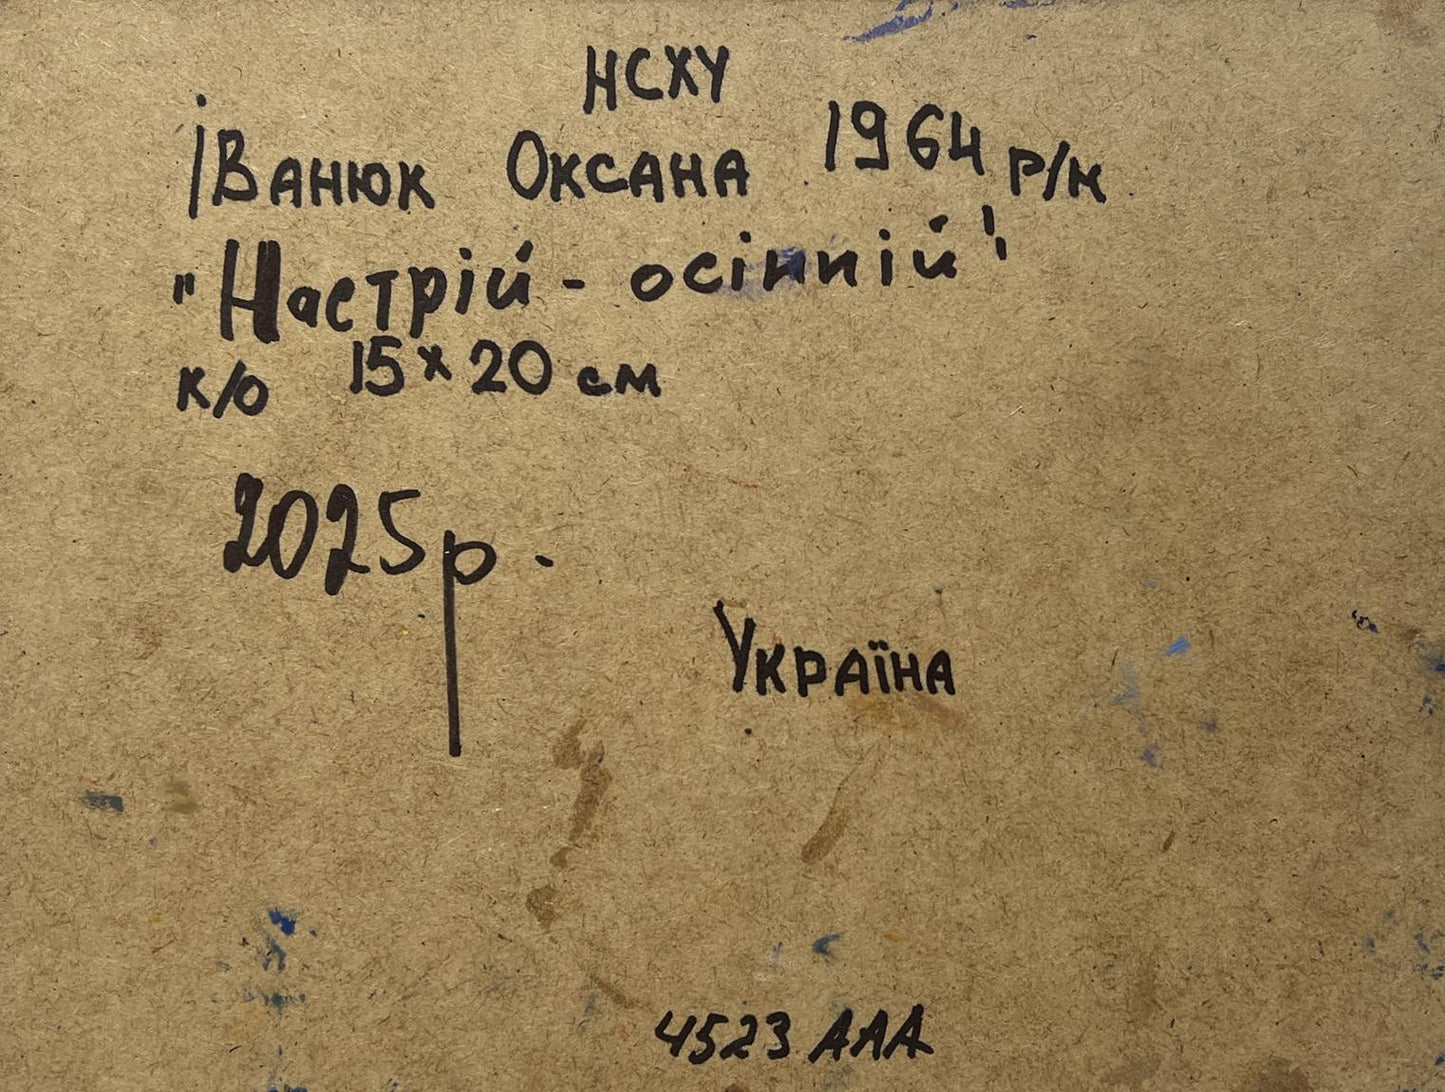 НСХУ
Іванюк Оксана 1964 р/н
"Настрій - осінній"
к/о 15 х 20 см
2025р.
Україна
4523 ААА